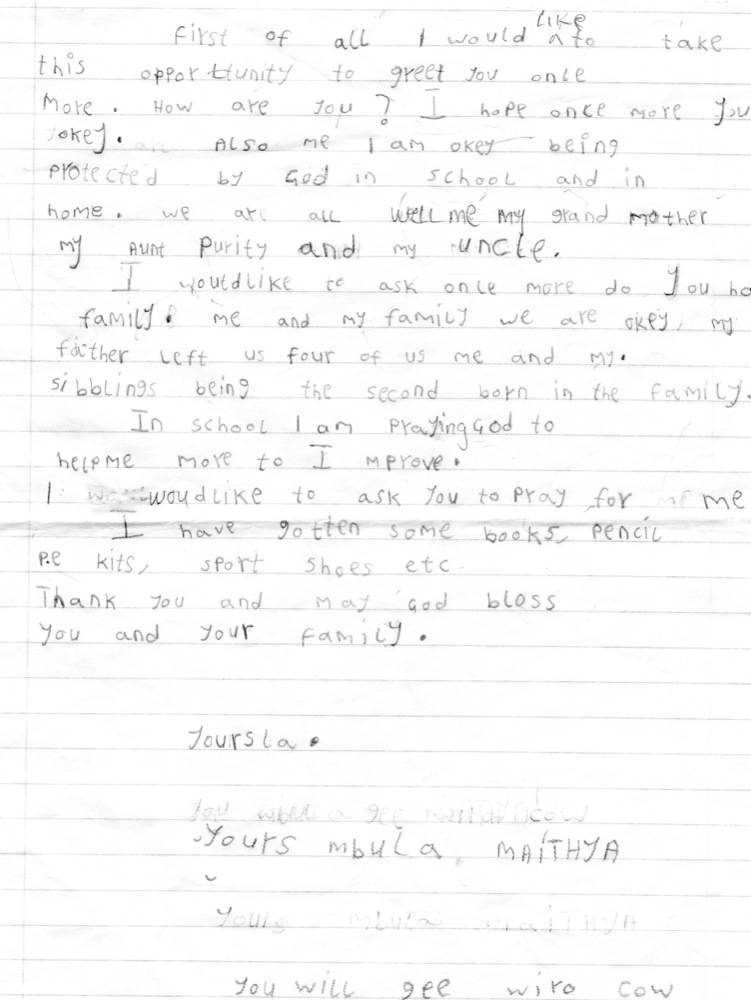 like
First of all I would ^ to take
this opporttunity to greet you once
More. How are you? I hope once more you
okey. Also me I am okey being
protected by God in school and in
home. we are all well me my grand mother
my Aunt Purity and my uncle.
I wouldlike to ask once more do you ha
family. me and my family we are okey, my
father left us four of us me and my.
sibblings being the second born in the family.
In school I am prayingGod to
helpme more to Improve.
I woudlike to ask you to pray for me
I have gotten some books, pencil
P.e kits, sport shoes etc.
Thank you and may God bloss
you and your family.
Yoursla.
Yours mbula MAiTHYA
Yours mbula MaiTHYA
You will gee wiro cow